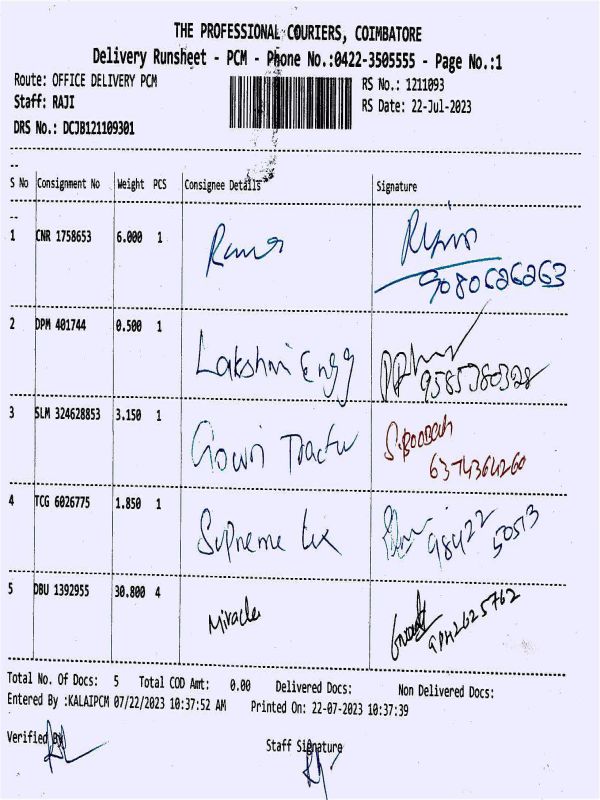 THE PROFESSIONAL COURIERS, COIMBATORE
Delivery Runsheet - PCM - Phone No.:0422-3505555 - Page No.:1
Route: OFFICE DELIVERY PCM RS No.: 1211093
Staff: RAJI RS Date: 22-Jul-2023
DRS No.: DCJB121109301
--
S No Consignment No Weight PCS Consignee Details Signature
--
1 CNR 1758653 6.000 1
9080626263
2 DPM 401744 0.500 1 Lakshmi Engg
9585780328
3 SLM 324628853 3.150 1 Gowri Tractor S.BOOBASH
6374364260
4 TCG 6026775 1.850 1 Supreme tex 98422 50513
5 DBU 1392955 30.800 4 Miracle
Total No. Of Docs: 5 Total COD Amt: 0.00 Delivered Docs: Non Delivered Docs:
Entered By :KALAIPCM 07/22/2023 10:37:52 AM Printed On: 22-07-2023 10:37:39
Verified By
Staff Signature